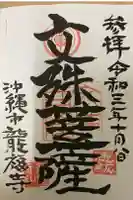 参拝 令和三年十月八日
文殊菩薩
沖縄市 龍福寺